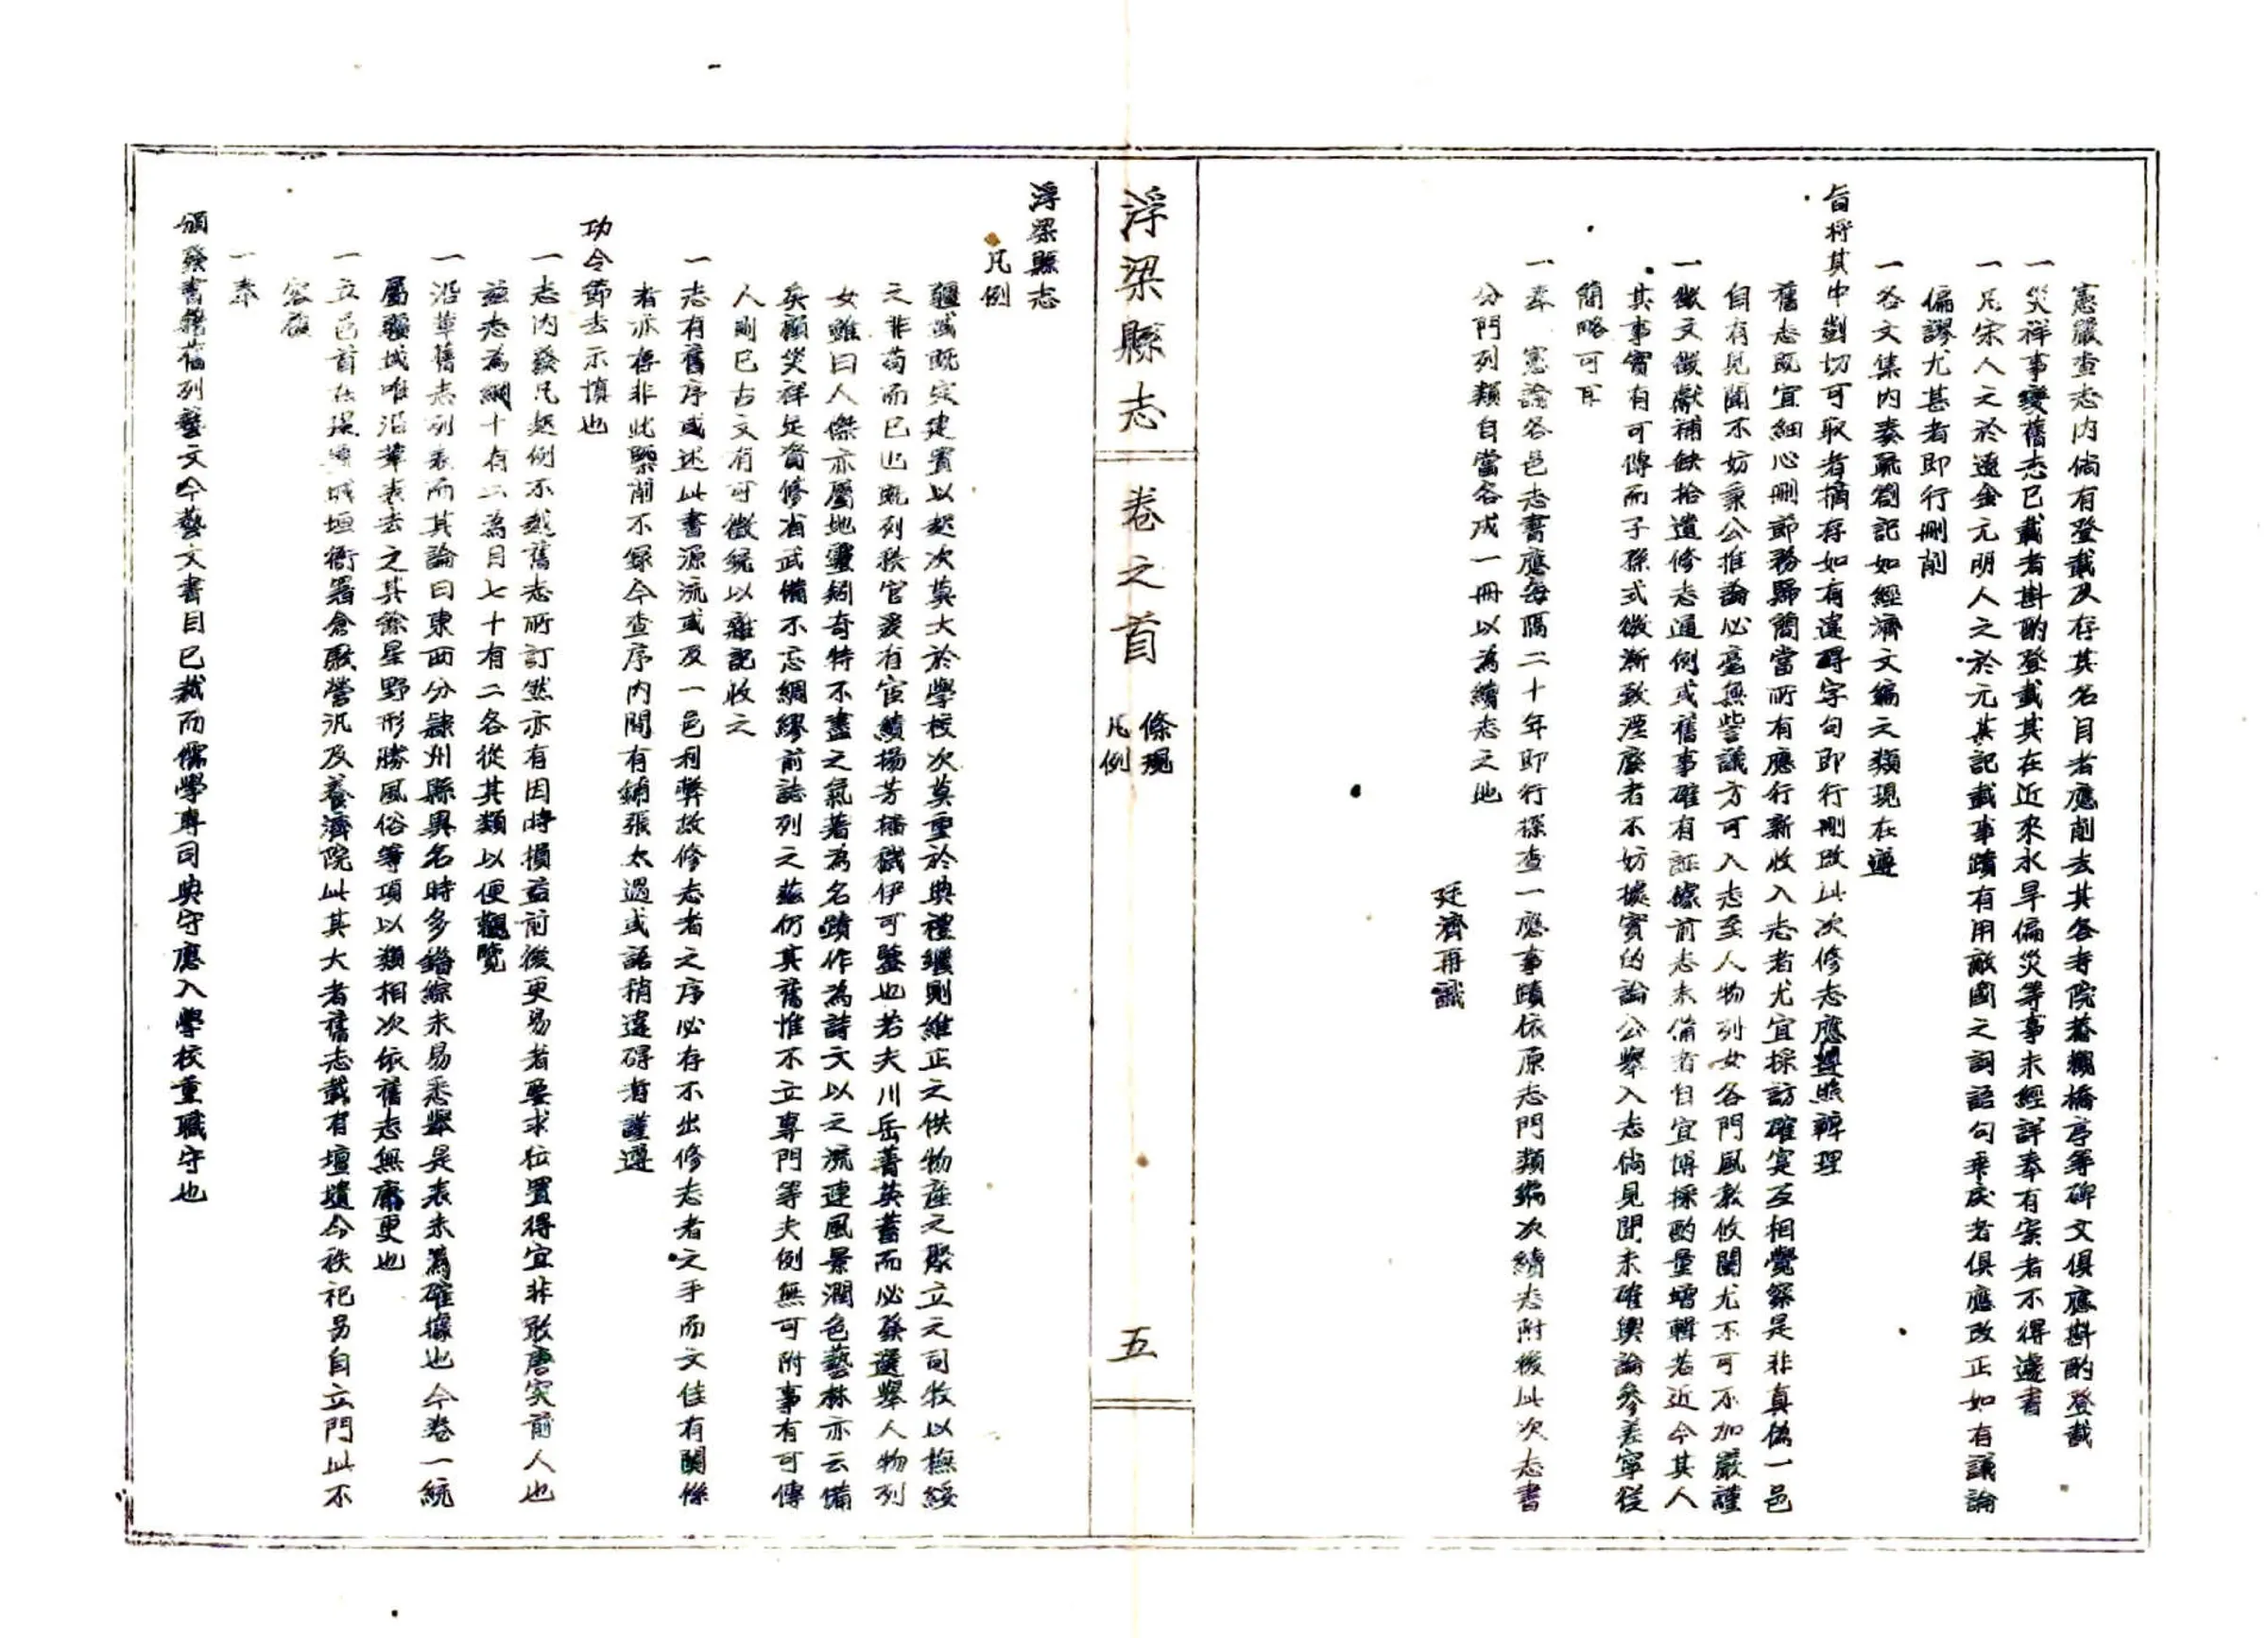 憲嚴查志內倘有登載及存其名目者應削去其各寺院菴觀橋亭等碑文俱應斟酌登載
一災祥事變舊志已載者斟酌登載其在近來水旱偏災等事未經詳奉有案者不得遽書
一凡宋人之於遼金元明人之於元其記載事蹟有用敵國之詞語句乖戾者俱應改正如有議論
偏謬尤甚者即行刪削
一各文集內奏疏劄記如經濟文編之類現在遵
旨將其中剴切可取者摘存如有違碍字句即行刪改此次修志應遵照辦理
舊志既宜細心刪節務歸簡當所有應行新收入志者尤宜採訪確實互相覺察是非真偽一邑
自有見聞不妨秉公推論必毫無訾議方可入志至人物列女各門風教攸關尤不可不加嚴謹
一徵文徵獻補缺拾遺修志通例或舊事確有証據前志未備者自宜博採酌量增輯若近今其人
其事實有可傳而子孫式微漸致湮廢者不妨據實的論公舉入志倘見聞未確輿論參差寧從
簡略可耳
一奉 憲諭各邑志書應每隔二十年即行採查一應事蹟依原志門類編次續志附後此次志書
分門列類自當各成一冊以為續志之地
廷濟再識
浮梁縣志
卷之首
條規
凡例
五
浮梁縣志
凡例
疆域既定建置以起次莫大於學校次莫重於典禮繼則維正之供物產之聚立之司牧以撫綏
之非苟而已也既列秩官爰有宦績揚芳播穢伊可鑒也若夫川岳菁英蓄而必發選舉人物列
女雖曰人傑亦屬地靈矧奇特不盡之氣著為名蹟作為詩文以之流連風景潤色藝林亦云備
矣顧災祥足資修省武備不忘綢繆前誌列之茲仍其舊惟不立專門等夫例無可附事有可傳
人則已古文有可徵統以雜記收之
一志有舊序或述此書源流或及一邑利弊故修志者之序必存不出修志者之手而文佳有關係
者亦存非此槩削不錄今查序內間有鋪張太過或語稍違碍者謹遵
功令節去示慎也
一志內發凡起例不越舊志所訂然亦有因時損益前後更易者要求位置得宜非敢唐突前人也
茲志為綱十有二為目七十有二各從其類以便觀覽
一沿革舊志列表而其論曰東西分隸州縣異名時多錯綜未易悉舉是表未為確據也今卷一統
屬疆域唯沿革表去之其餘星野形勝風俗等項以類相次依舊志無庸更也
一立邑首在城垣衙署倉廒營汛及養濟院此其大者舊志載有壇壝今秩祀另自立門此不
容複
一奉
頒發書籍舊列藝文今藝文書目已裁而儒學專司典守應入學校重職守也